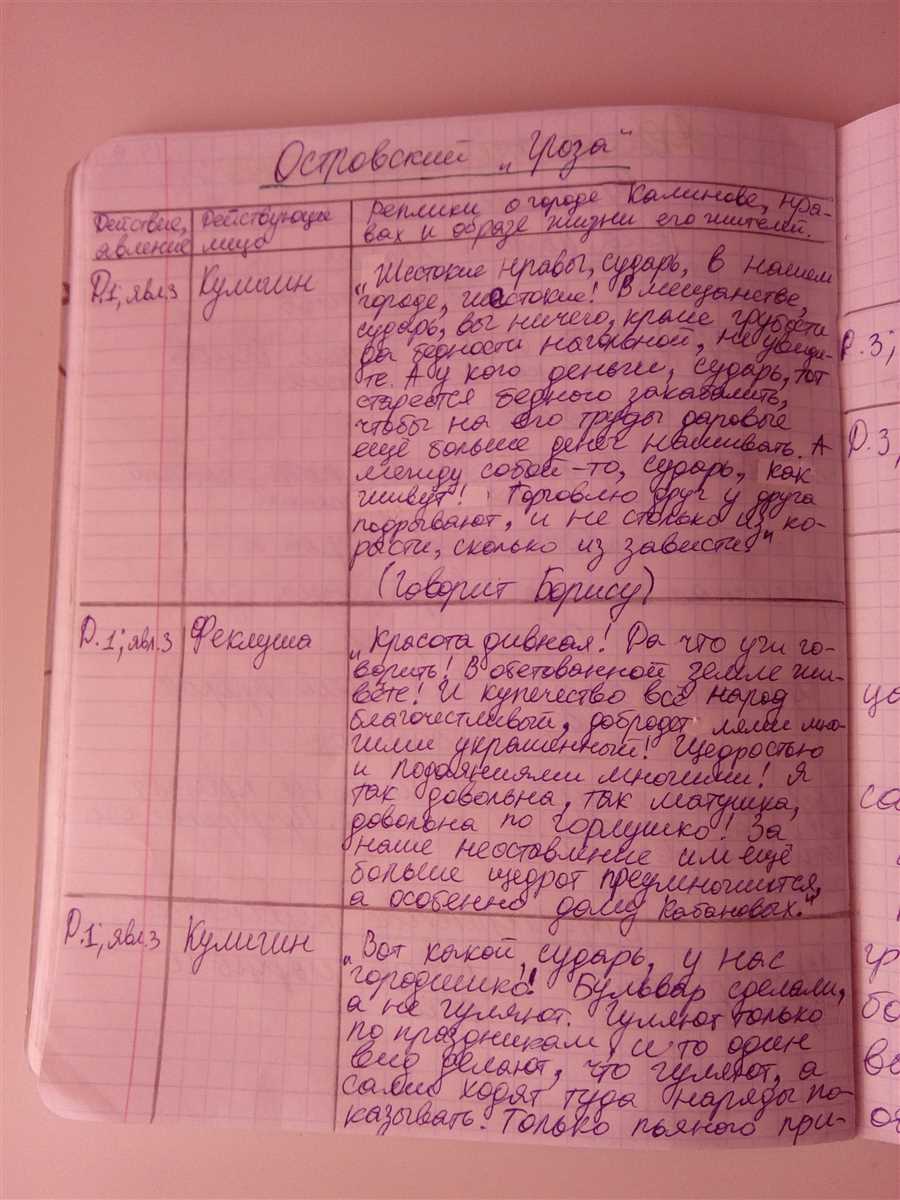 Островский "Гроза"
Действие, явление
Действующие лицо
Реплики о городе Калинове, нра-
вах и образе жизни его жителей.
Д.1; явл.3
Кулигин
"Жестокие нравы, сударь, в нашем
городе, жестокие! В мещанстве,
сударь, вы ничего, кроме грубости
да бедности нагольной, не увиди-
те. А у кого деньги, сударь, тот
старается бедного закабалить,
чтобы на его труды даровые
ещё больше денег наживать. А
между собой-то, сударь, как
живут! Торговлю друг у друга
подрывают, и не столько из ко-
рысти, сколько из зависти."
(Говорит Борису)
Д.1; явл.3
Феклуша
"Красота дивная! Да что уж го-
ворить! В обетованной земле жи-
вёте! И купечество всё народ
благочестивый, добродетелями мно-
гими украшенный! Щедростью
и подаяниями многими! Я
так довольна, так матушка,
довольна по горлушко! За
наше неоставление им ещё
больше щедрот преумножится,
а особенно дому Кабановых."
Д.1; явл.3
Кулигин
"Вот какой, сударь, у нас
городишко! Бульвар сделали,
а не гуляют. Гуляют только
по праздникам и то один
вид делают, что гуляют, а
сами ходят туда наряды по-
казывать. Только пьяного при-
Д.3;
Д.3,